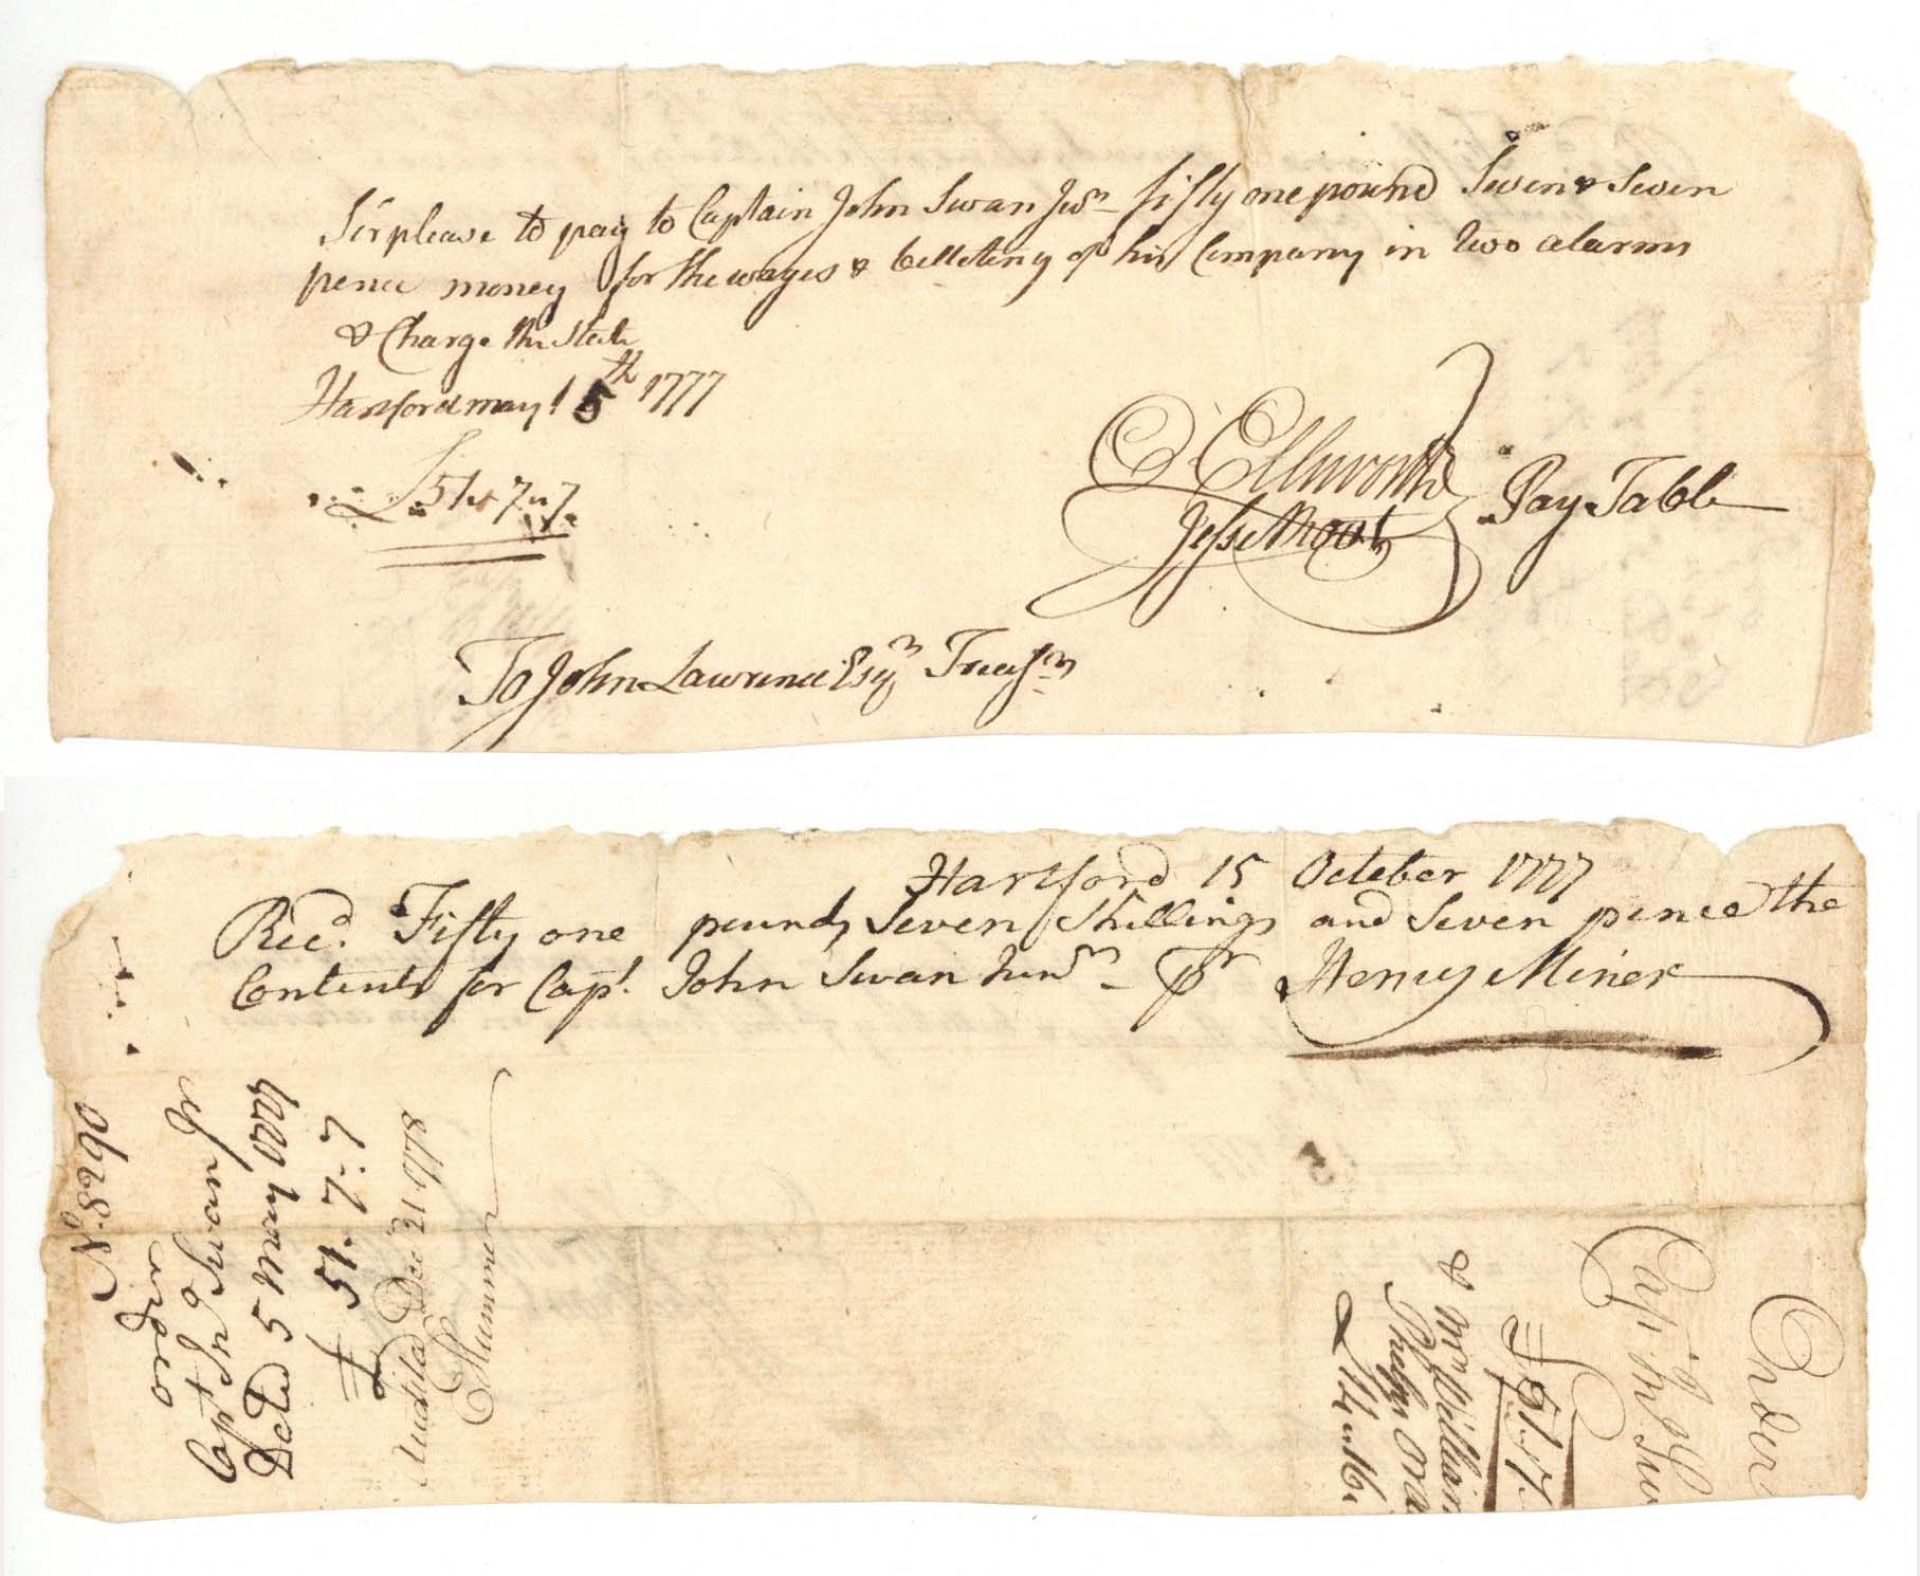 Sir please to pay to Captain John Swan Junr fifty one pound Seven & Seven
pence money for the wages & billeting of his Company in two alarms
& Charge the State
Hartford may 15th 1777
£51 " 7 " 7
Ellsworth
Jesse Root
Pay Table
To John Lawrence Esqr Treasr
Hartford 15 October 1777
Recd. Fifty one pounds Seven Shillings and Seven pence the
Contents for Capt. John Swan Junr pr Henry Miner
No. 8290
order
Capt Jno Swan Jr
Dated 5 May 1777
£ 51. 7. 7
Audited Decr 21 1778
Order
Capt. Jno Sw
£51.7.
& Mr William
Phelps ord